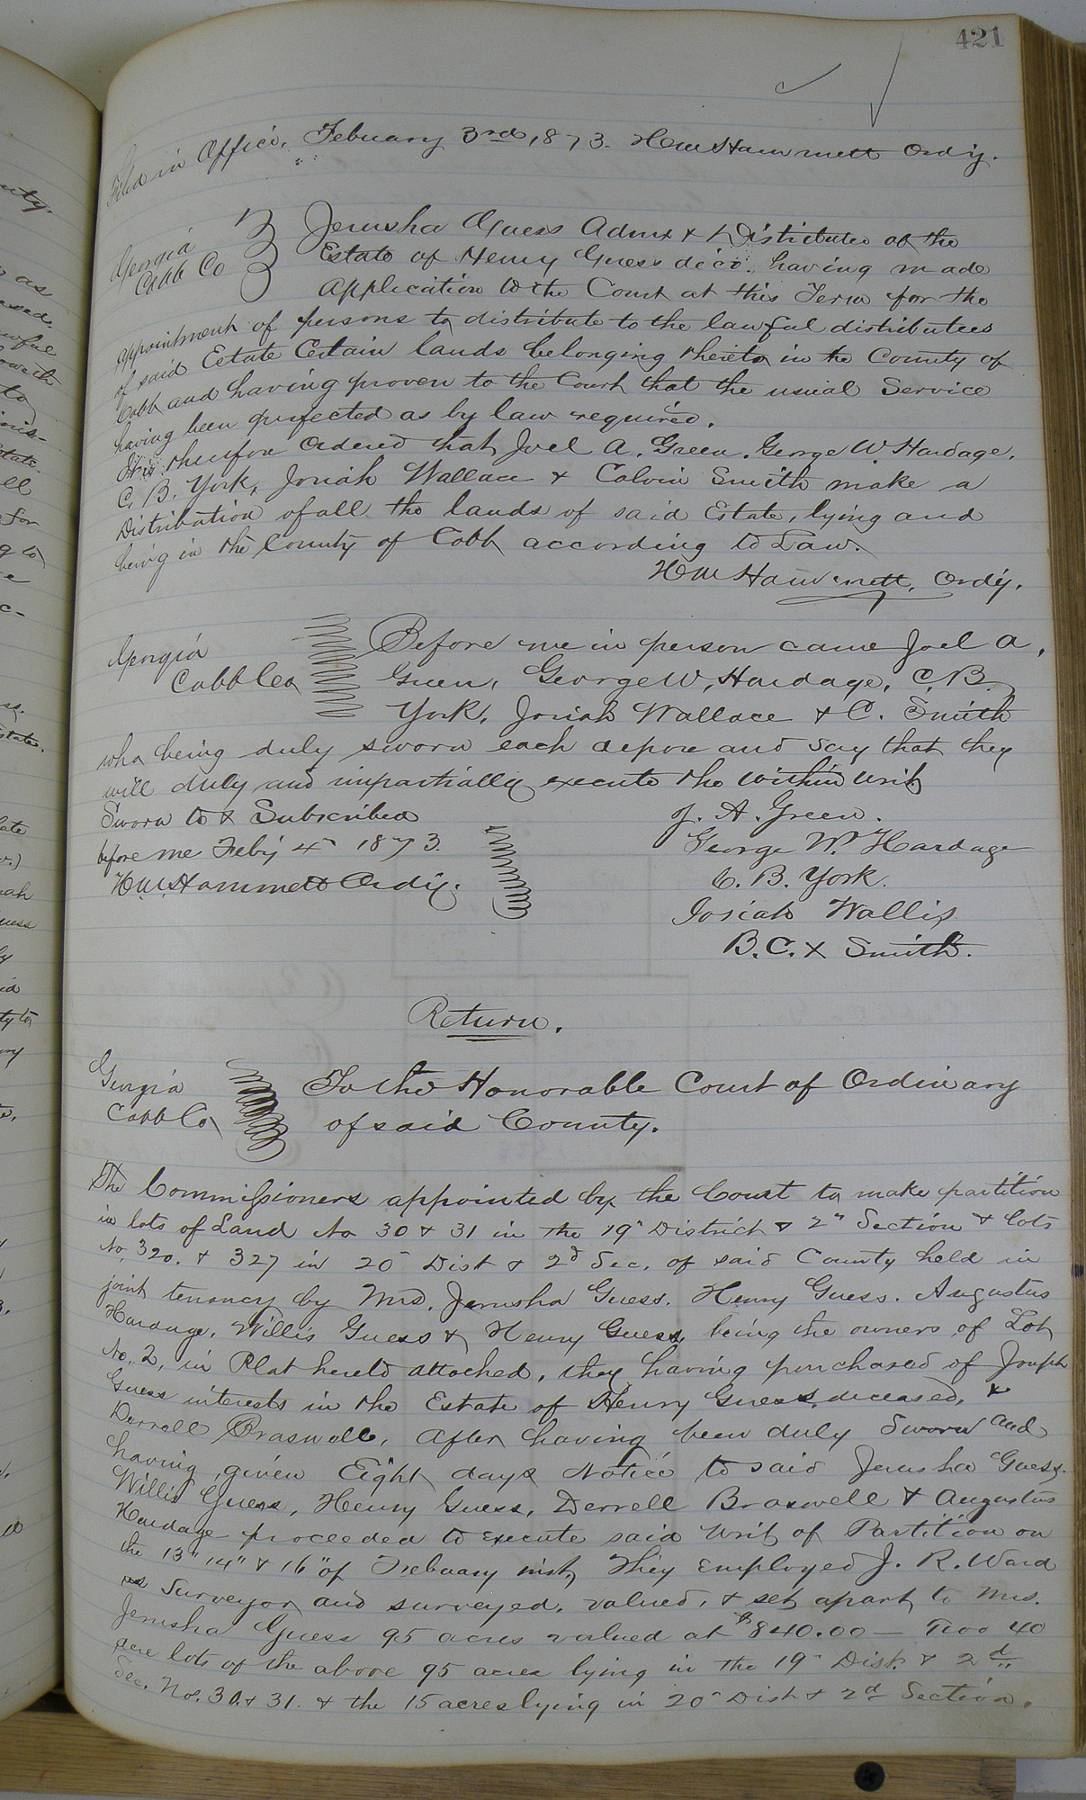 421
Filed in Office, Febuary 3rd, 1873. H M Hammett Ordy.
Georgia
Cobb Co
Jerusha Guess Admx & Distributee of the
Estate of Henry Guess decd. having made
Application to the Court at this Term for the
appointment of persons to distribute to the lawful distributees
of said Estate Certain lands belonging thereto in the County of
Cobb and having proven to the Court that the usual Service
having been perfected as by law required.
It is therefore Ordered that Joel A. Green. George W. Hardage.
C. B. York, Josiah Wallace & Calvin Smith make a
Distribution of all the lands of said Estate, lying and
being in the County of Cobb according to Law.
H M Hammett, Ordy.
Georgia
Cobb Co
Before me in person came Joel A.
Green, George W, Hardage, C. B.
York, Josiah Wallace & C. Smith
who being duly sworn each depose and say that they
will duly and impartially execute the within writ
Sworn to & Subscribed
before me Feby 4th 1873.
H M Hammett Ordy.
J. A. Green.
George W. Hardage
C. B. York.
Josiah Wallis
B. C. X Smith.
Return.
Georgia
Cobb Co
To the Honorable Court of Ordinary
of said County.
The Commissioners appointed by the Court to make partition
in lots of Land No 30 & 31 in the 19" District & 2" Section & lots
No. 320. & 327 in 20" Dist & 2d Sec. of said County held in
joint tenancy by Mrs. Jerusha Guess. Henry Guess. Augustus
Hardage, Willis Guess & Henry Guess, being the owners of Lot
No. 2, in Plat hereto attached, they having purchased of Joseph
Guess interests in the Estate of Henry Guess, deceased, &
Derrell Braswell, After having been duly Sworn and
having given Eight days Notice to said Jerusha Guess.
Willis Guess, Henry Guess, Derrell Braswell & Augustus
Hardage proceeded to execute said Writ of Partition on
the 13" 14" & 16" of Febuary inst, They employed J. R. Ward
as Surveyor and surveyed, valued, & set apart to Mrs.
Jerusha Guess 95 acres valued at $840.00 — Two 40
acre lots of the above 95 acres lying in the 19" Dist. & 2d
Sec. Nos. 30 & 31. & the 15 acres lying in 20" Dist & 2d Section.